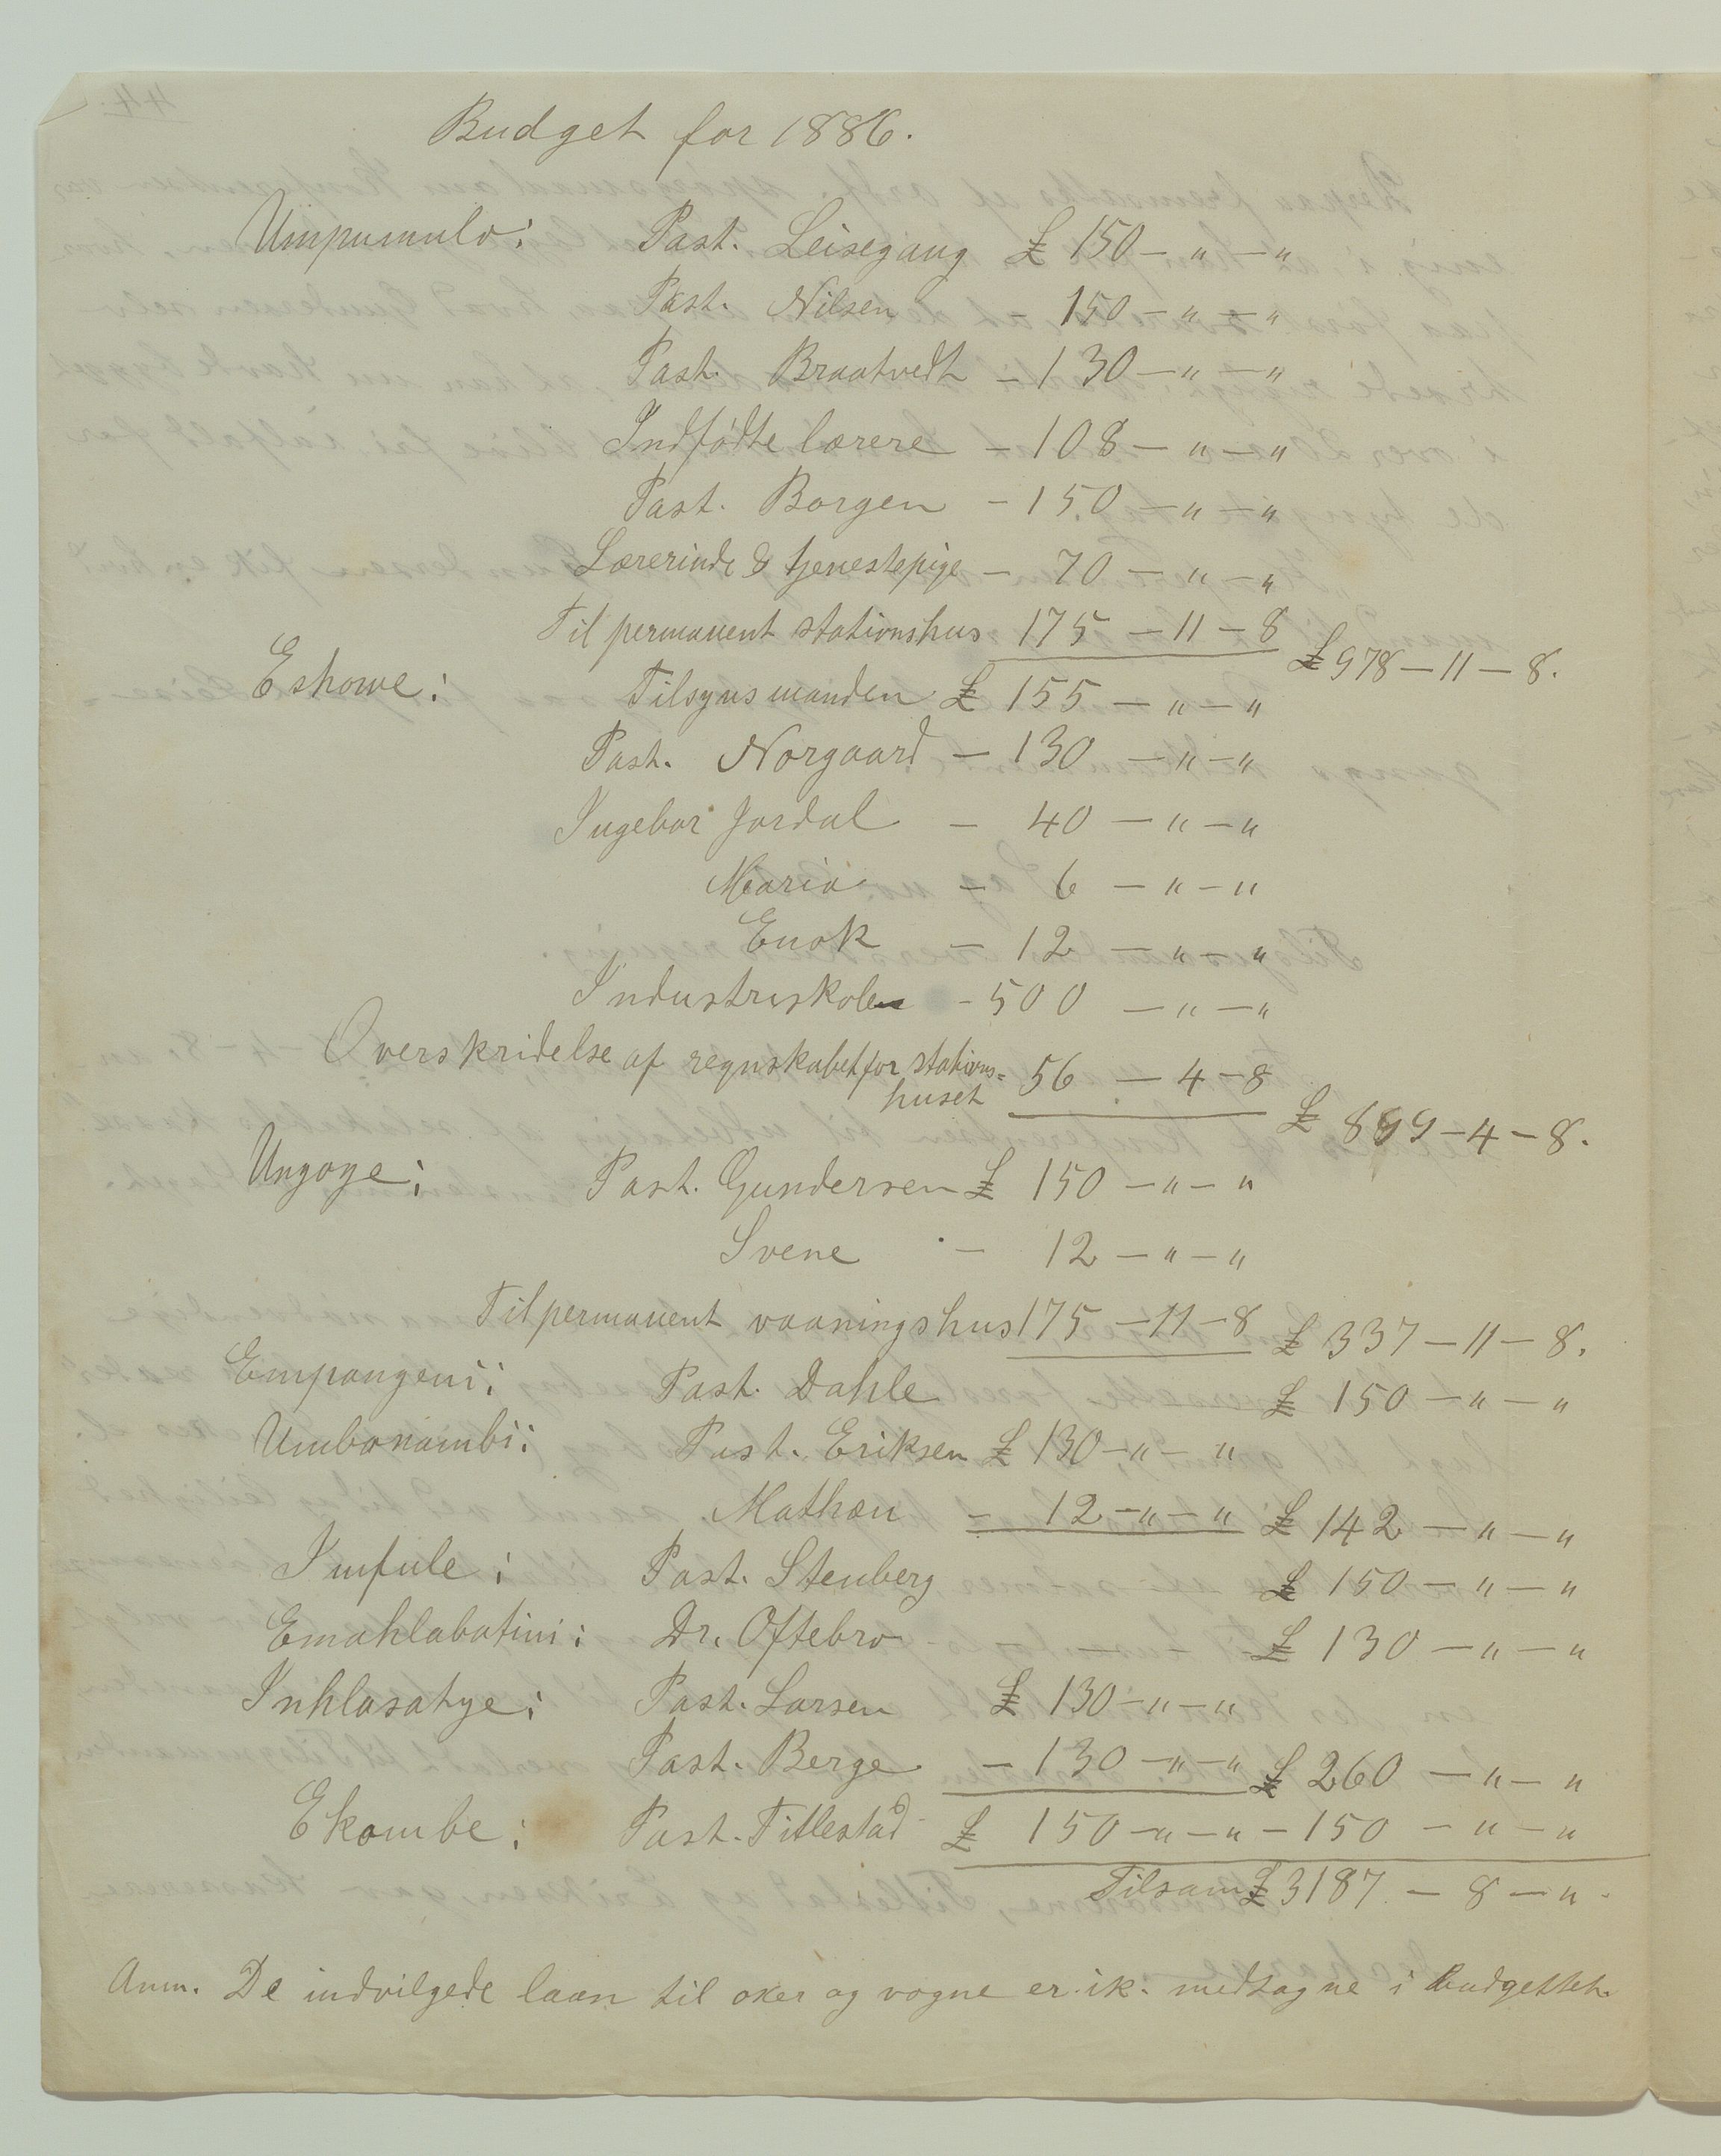 Budget for 1886.
Umpumulo: Past. Leisegang £ 150 — " — "
Past. Nilsen 150 — " — "
Past. Braatvedt — 130 — " — "
Indfødte lærere — 108 — " — "
Past. Borgen — 150 — " — "
Lærerinde & tjenestepige — 70 — " — "
Til permanent stationshus 175 — 11 — 8 £ 978 — 11 — 8.
Eshowe: Tilsynsmanden £ 155 — " — "
Past. Norgaard — 130 — " — "
Ingebor Jordal — 40 — " — "
Maria — 6 — " — "
Enok — 12 — " — "
Industriskolen — 500 — " — "
Overskridelse af regnskabet for stations=
huset 56 — 4 — 8 £ 899 — 4 — 8.
Ungoye: Past. Gundersen £ 150 — " — "
Svene — 12 — " — "
Til permanent vaaningshus 175 — 11 — 8 £ 337 — 11 — 8.
Empangeni: Past. Dahle £ 150 — " — "
Umbonambi: Past. Eriksen £ 130 — " — "
Mathæu — 12 — " — " £ 142 — " — "
Imfule: Past. Stenberg £ 150 — " — "
Emahlabatini: Dr. Oftebro £ 130 — " — "
Inhlasatye: Past. Larsen £ 130 — " — "
Past. Berge — 130 — " — " £ 260 — " — "
Ekombe: Past. Titlestad £ 150 — " — " — 150 — " — "
Tilsam £ 3187 — 8 — ".
Anm. De indvilgede laan til oxer og vogne er ik. medtagne i Budgettet.